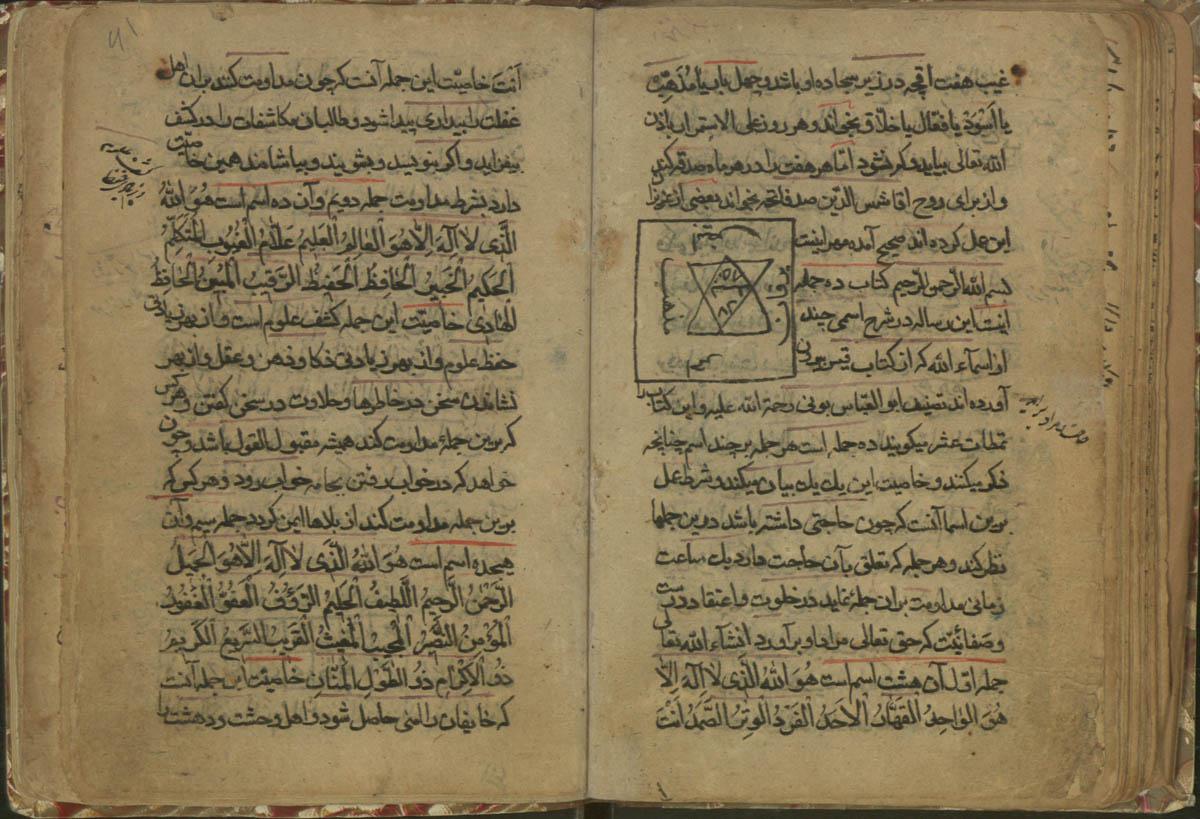 غیب هفت اقچه در زیر سجاده او باشد و چهل باب یا مذهب
یا اسوذ یا فعال یا خلاق بخواند و هر روز علی الاستمرار باذن
الله تعالی بیابد و کم نشود اما هر هفت را در هر ماه صدقه کند
و از برای روح اقا شمس الدین صد فاتحه بخواند بعضی از عزیزا
این عمل کرده اند صحیح آمده مهر اینست
بسم الله الرحمن الرحیم کتاب ده جمله
اینست این رساله در شرح اسمی چند
از اسمآء الله که از کتاب قبس
آورده اند تصنیف ابو العباس بونی رحمة الله علیه و این کتاب را
نمطات عشر میکویند ده جمله است هر جمله بر چند اسم چنانچه
ذکر میکند و خاصیت این یك یك بیان میکند و شرط عمل
برین اسما آنست که چون حاجتی داشته باشد درین جملها
نظر کند و هر جمله که تعلق بآن حاجت دارد یك ساعت
زمانی مداومت بران جمله نماید در خلوت و اعتقاد درست
و صفا نیت که حق تعالی مراد او بر آورد انشآء الله تعالی
جمله اول آن هشت اسم است هو الله الذی لا اله الا
هو الواحد القهار الاحد الفرد الوتر الصمد انت
انت خاصیت این جمله آنست که چون مداومت کنند بران اهل
غفلت را بیداری پیدا شود و طالبان مکاشفات را در کشف
بیفزاید و اکر بنویسد و بشویند و بیاشامند همین خاصیت
دارد بشرط مداومت جمله دویم و آن ده اسم است هو الله
الذی لا اله الا هو العالم العلیم علام الغیوب المتکلم
الحکیم الخبیر الحافظ الحفیظ الرقیب المبین الحافظ
الهادی خاصیت این جمله کشف علوم است و از بهر زیادتی
حفظ علوم و از بهر زیادتی ذکا و ذهن و عقل و از بهر
نشاندن سخن در خاطرها و حلاوت در سخن کفتن و هر کس
که برین جمله مداومت کند همیشه مقبول القول باشد و چون
خواهد که در خواب رفتن بجامه خواب رود و هر کس که
برین جمله مداومت کند از بلاها ایمن کردد جمله سیم و آن
هیجده اسم است هو الله الذی لا اله الا هو الجمیل
الرحمن الرحیم اللطیف الحلیم الرؤف العفو الغفور
المؤمن النصیر المجیب المغیث القریب السریع الکریم
ذو الاکرام ذو الطول المنان خاصیت این جمله آنست
که خایفان را امنی حاصل شود و اهل وحشت و دهشت را